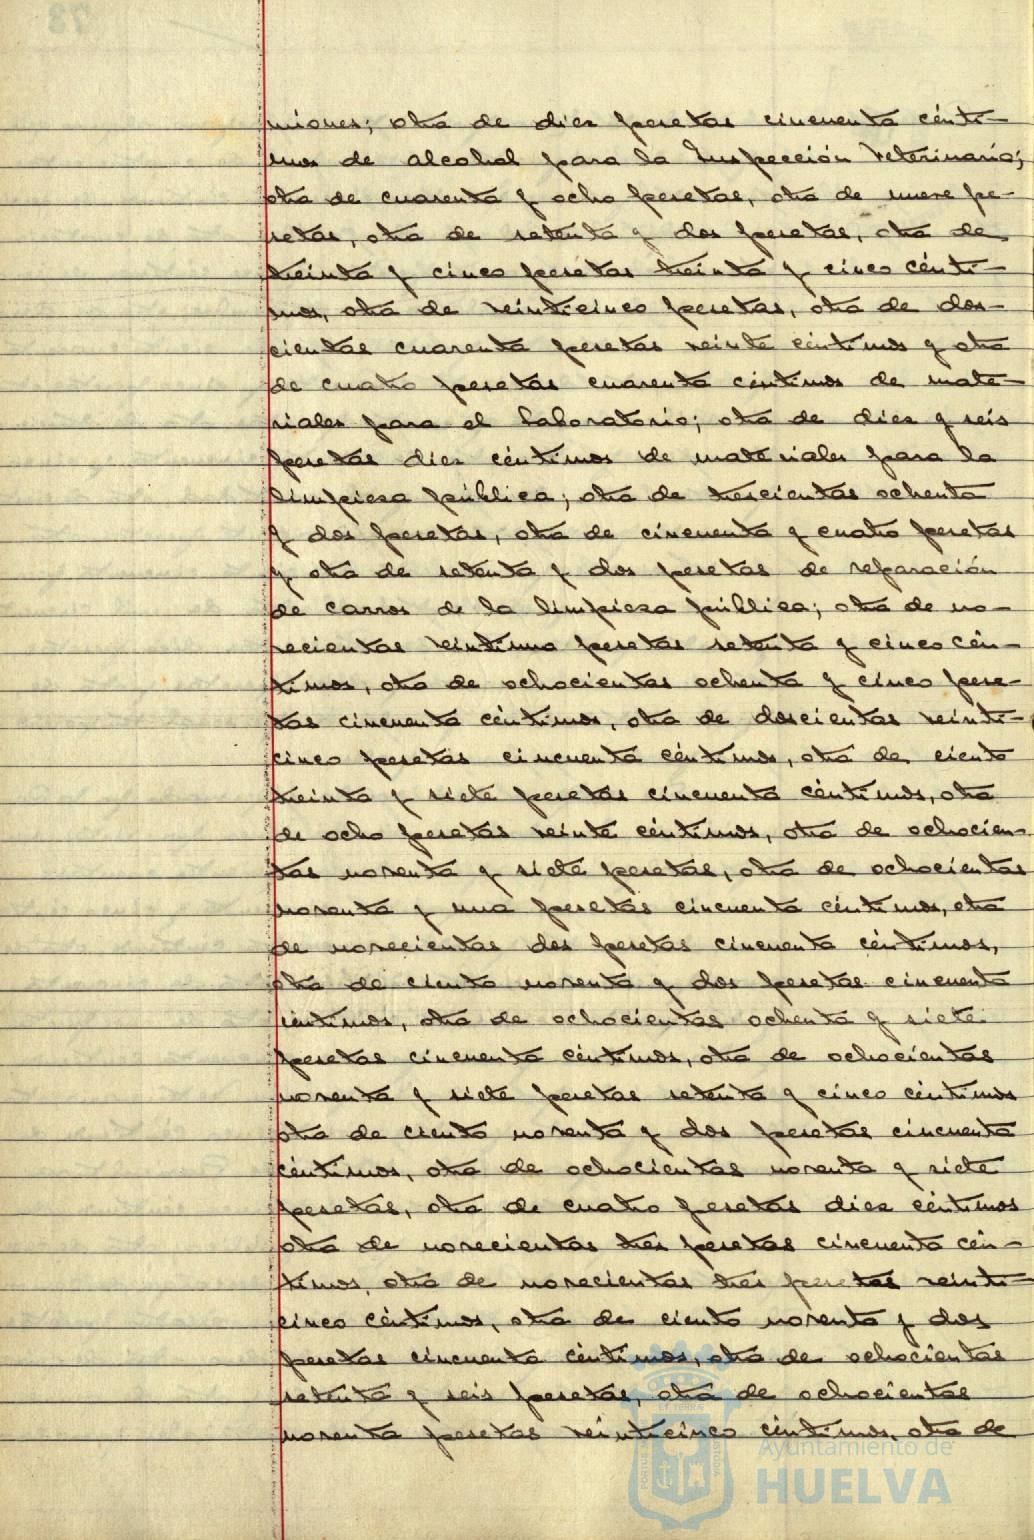 miones; otra de diez pesetas cincuenta cénti-
mos de alcohol para la Inspección Veterinaria;
otra de cuarenta y ocho pesetas, otra de nueve pe-
setas, otra de setenta y dos pesetas, otra de
treinta y cinco pesetas treinta y cinco cénti-
mos, otra de veinticinco pesetas, otra de dos-
cientas cuarenta pesetas veinte céntimos y otra
de cuatro pesetas cuarenta céntimos de mate-
riales para el laboratorio; otra de diez y seis
pesetas diez céntimos de materiales para la
limpieza pública; otra de trescientas ochenta
y dos pesetas, otra de cincuenta y cuatro pesetas
y otra de setenta y dos pesetas de reparación
de carros de la limpieza pública; otra de no-
vecientas veintiuna pesetas setenta y cinco cén-
timos, otra de ochocientas ochenta y cinco pese-
tas cincuenta céntimos, otra de doscientas veinti-
cinco pesetas cincuenta céntimos, otra de ciento
treinta y siete pesetas cincuenta céntimos, otra
de ocho pesetas veinte céntimos, otra de ochocien-
tas noventa y siete pesetas, otra de ochocientas
noventa y una pesetas cincuenta céntimos, otra
de novecientas dos pesetas cincuenta céntimos,
otra de ciento noventa y dos pesetas cincuenta
céntimos, otra de ochocientas ochenta y siete
pesetas cincuenta céntimos, otra de ochocientas
noventa y siete pesetas setenta y cinco céntimos
otra de ciento noventa y dos pesetas cincuenta
céntimos, otra de ochocientas noventa y siete
pesetas, otra de cuatro pesetas diez céntimos
otra de novecientas tres pesetas cincuenta cén-
timos, otra de novecientas tres pesetas veinti-
cinco céntimos, otra de ciento noventa y dos
pesetas cincuenta céntimos, otra de ochocientas
setenta y seis pesetas, otra de ochocientas
noventa pesetas veinticinco céntimos, otra de
Ayuntamiento de
HUELVA